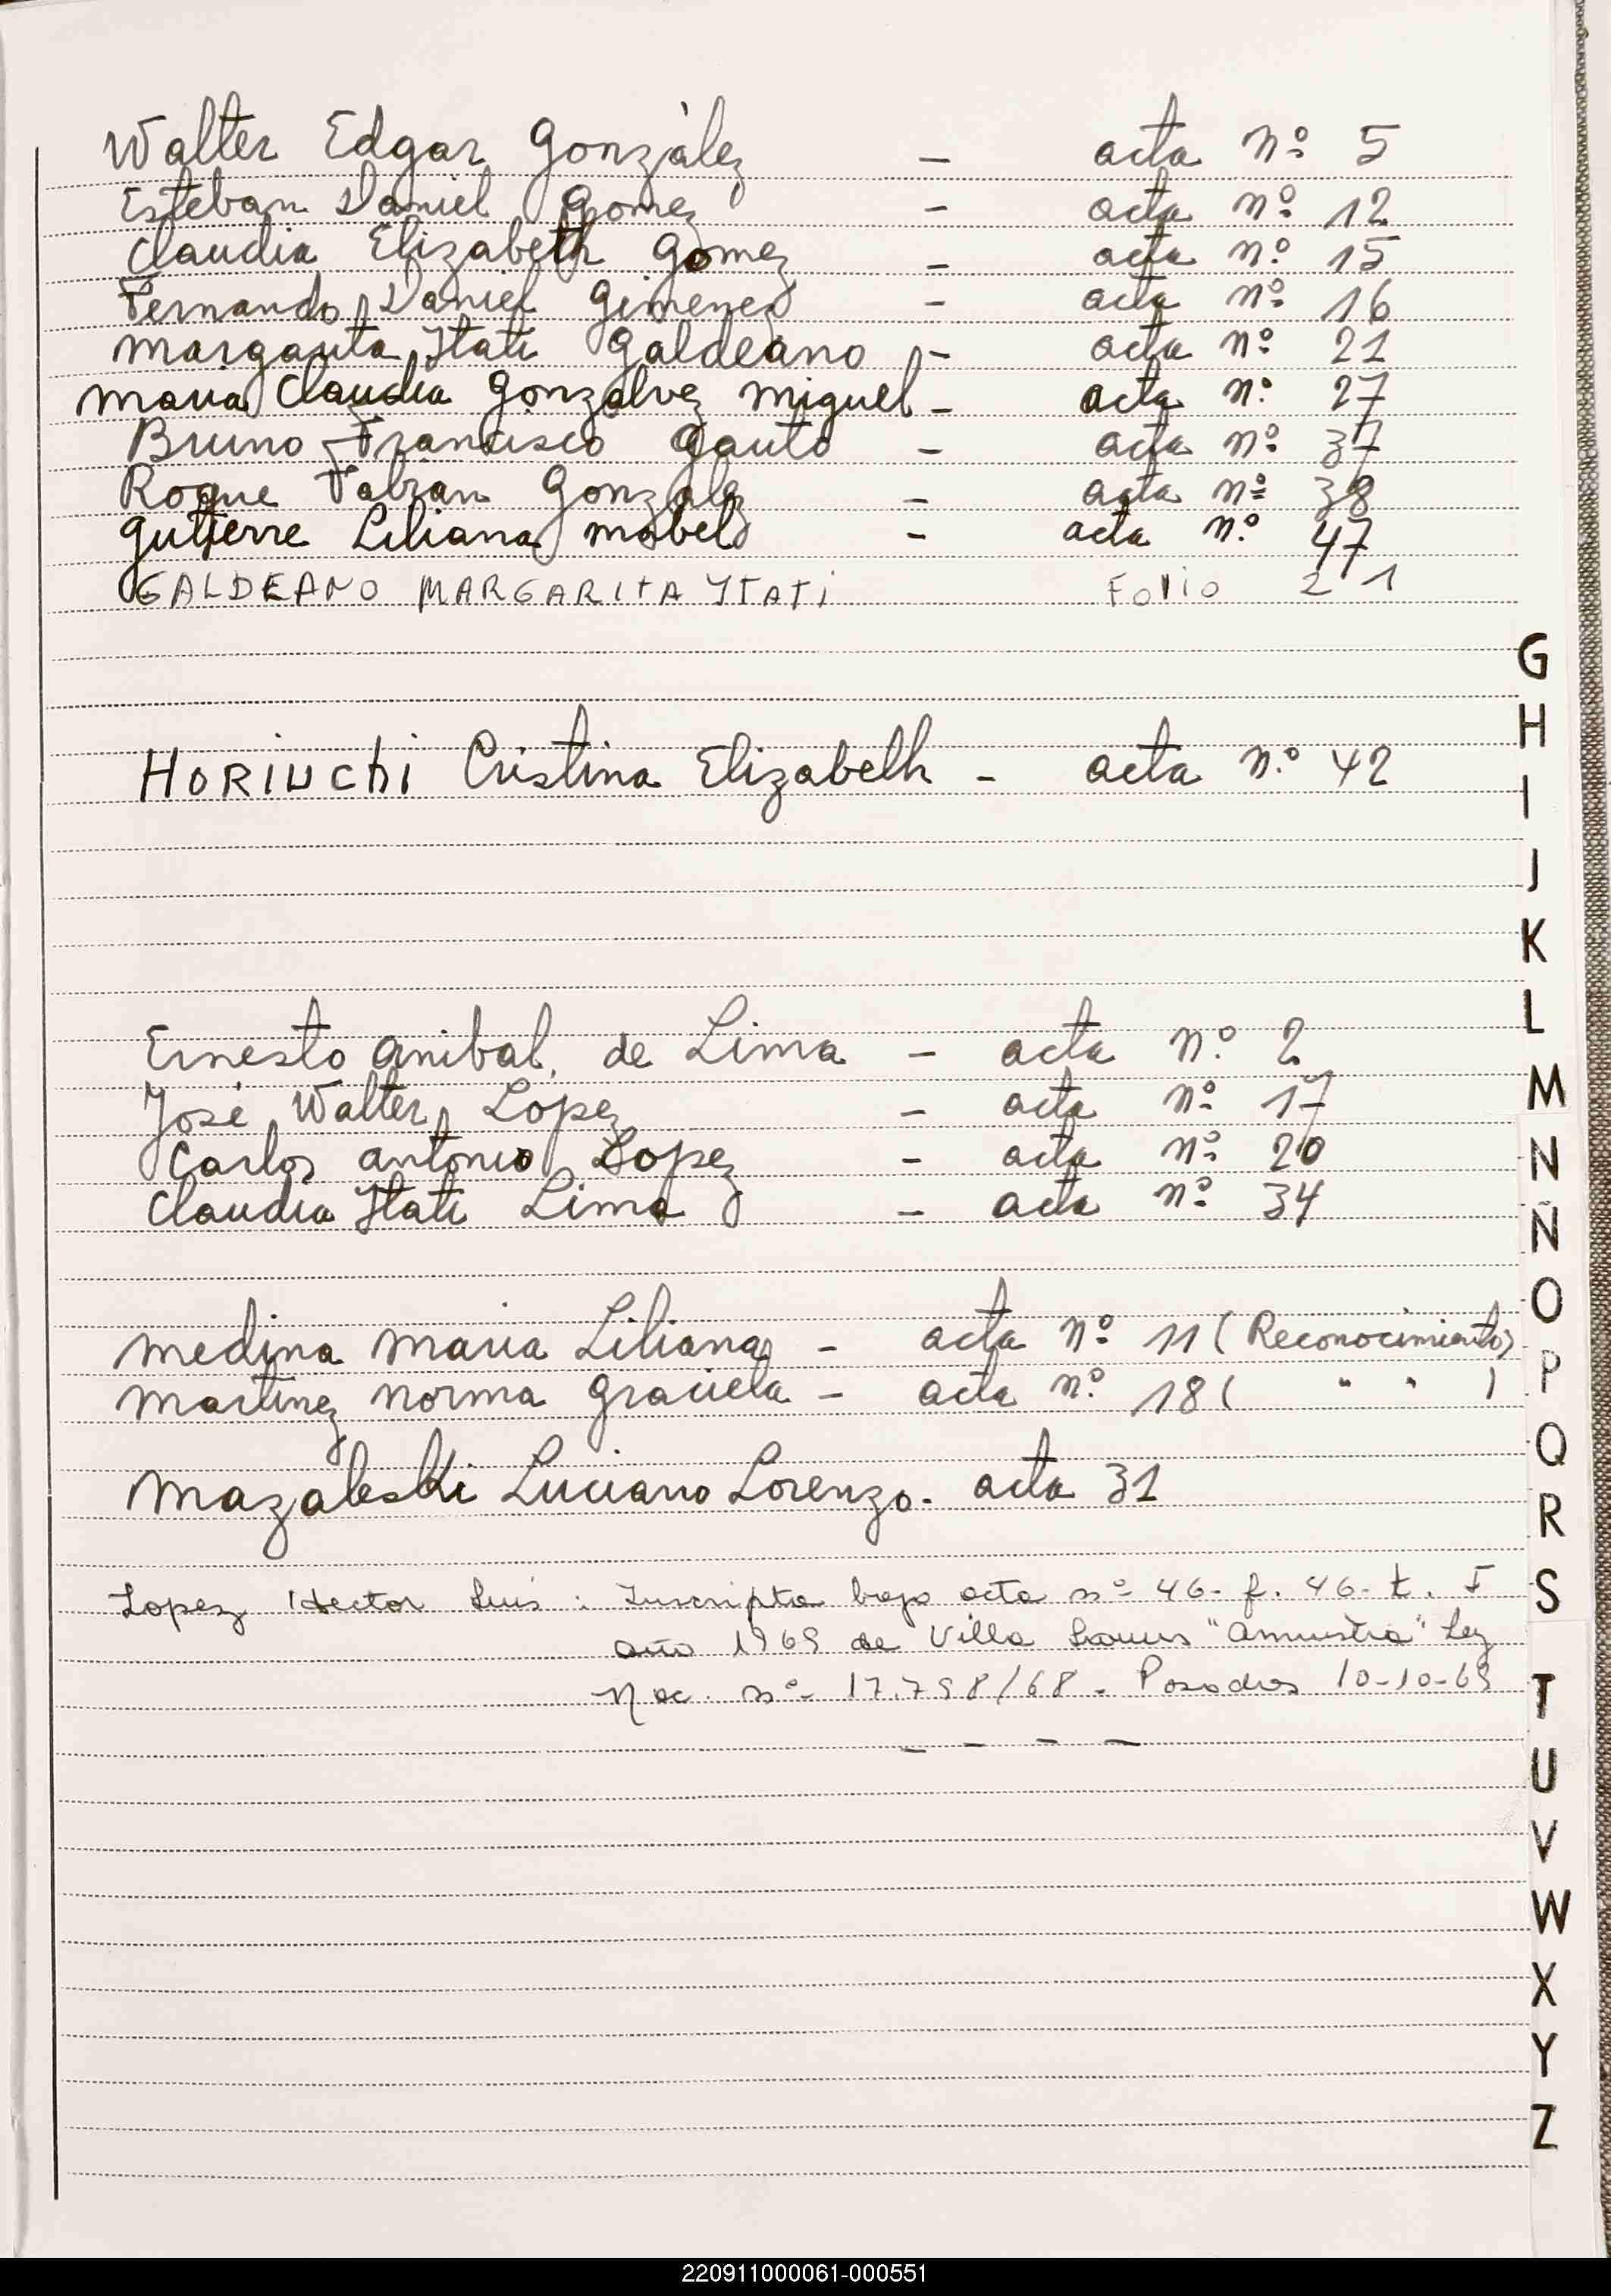 Walter Edgar Gonzàlez - acta nº 5
Esteban Daniel Gomez - acta nº 12
Claudia Elizabeth Gomez - acta nº 15
Fernando Daniel Gimenez - acta nº 16
Margarita Itati Galdeano - acta nº 21
Maria Claudia Gonzalvez Miguel - acta nº 27
Bruno Francisco Gauto - acta nº 37
Roque Fabian Gonzalez - acta nº 38
Gutierre Liliana Mabel - acta nº 47
GALDEANO MARGARITA ITATI Folio 21
G
H
HORIUCHI Cristina Elizabeth - acta nº 42
I
J
K
L
Ernesto Anibal de Lima - acta nº 2
M
José Walter Lopez - acta nº 17
Carlos Antonio Lopez - acta nº 20
N
Claudia Itati Lima - acta nº 34
Ñ
O
Medina Maria Liliana - acta nº 11 (Reconocimiento)
P
Martinez Norma Graciela - acta nº 18 ( " " )
Q
Mazaleski Luciano Lorenzo. acta 31
R
Lopez Hector Luis : Inscripta bajo acta nº 46- f. 46- t. I
S
año 1969 de Villa "Amnistia" Ley
Nac. nº 17.798/68 - Posadas 10-10-69
T
- - - -
U
V
W
X
Y
Z
220911000061-000551